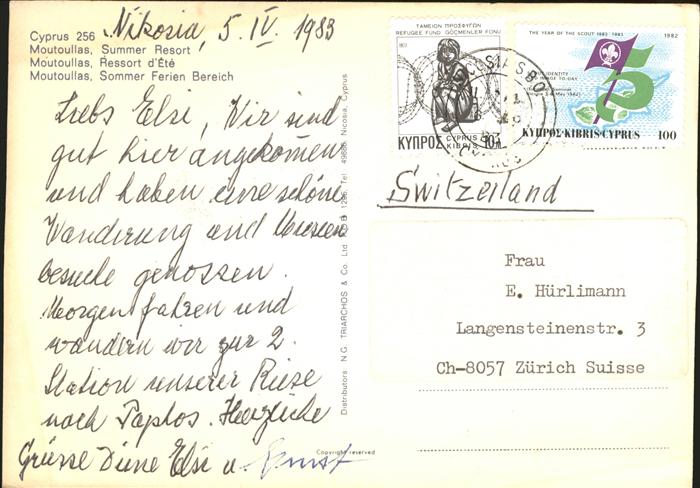 Cyprus 256
Moutoullas, Summer Resort
Moutoullas, Ressort d'Été
Moutoullas, Sommer Ferien Bereich
Nikosia, 5. IV. 1983
Liebs Elsi, Wir sind
gut hier angekommen
und haben eine schöne
Wanderung und Museen
besuche genossen.
Morgen fahren und
wandern wir zur 2.
Station unserer Reise
nach Paphos. Herzliche
Grüsse Deine Elsi u. Ernst
Distributors: N.G. TRIARCHOS & Co. Ltd. P.O.B. Tel. Nicosia, Cyprus
Copyright reserved
ΤΑΜΕΙΟΝ ΠΡΟΣΦΥΓΩΝ
REFUGEE FUND GÖÇMENLER FONU
1977
ΚΥΠΡΟΣ
CYPRUS
KIBRIS
10
THE YEAR OF THE SCOUT 1982 1983
1982
ΚΥΠΡΟΣ·KIBRIS·CYPRUS
100
CYPRUS
Switzerland
Frau
E. Hürlimann
Langensteinenstr. 3
Ch-8057 Zürich Suisse